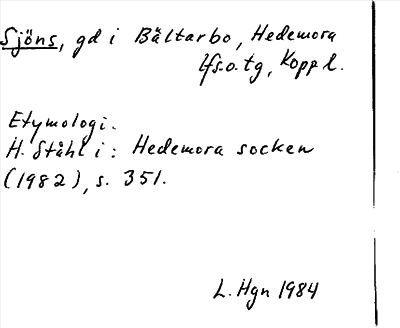 Sjöns, gd i Bältarbo, Hedemora
lfs. o. tg, Koppl.
Etymologi.
H. Ståhl i: Hedemora socken
(1982), s. 351.
L. Hgn 1984